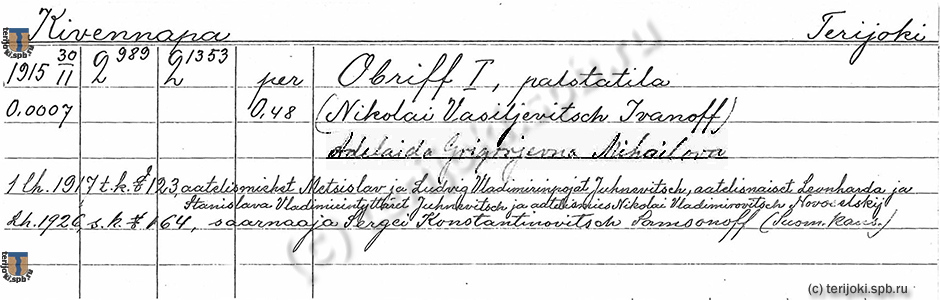 Kivennapa Terijoki
1915 30/11 2 989 2 1353 per Obriff I, palstatila
0.0007 0,48 (Nikolai Vasiljevitsch Ivanoff)
Adelaida Grigorjevna Mihailova
1 lh. 1917 t.k. § 123, aatelismiehet Metsislav ja Ludvig Vladimirinpojat Juhnevitsch, aatelisnaiset Leonharda ja
Stanislava Vladimirintyttäret Juhnevitsch ja aatelismies Nikolai Vladimirovitsch Novoselskij
lh. 1926, s.k. § 164, saarnaaja Sergei Konstantinovitsch Samsonoff (Suom. kans.)
terijoki.spb.ru
terijoki.spb.ru
(c) terijoki.spb.ru
(c) terijoki.spb.ru